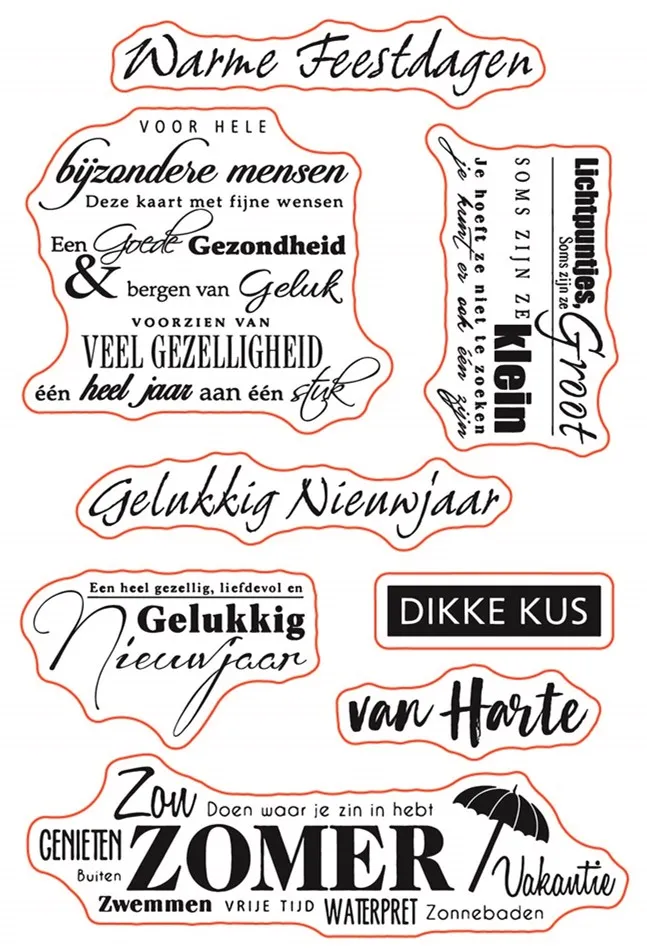 Warme Feestdagen
VOOR HELE
bijzondere mensen
Deze kaart met fijne wensen
Een Goede Gezondheid
& bergen van Geluk
VOORZIEN VAN
VEEL GEZELLIGHEID
één heel jaar aan één stuk
Lichtpuntjes,
Soms zijn ze Groot
SOMS ZIJN ZE klein
Je hoeft ze niet te zoeken
je kunt er ook één zijn
Gelukkig Nieuwjaar
Een heel gezellig, liefdevol en
Gelukkig
Nieuwjaar
DIKKE KUS
van Harte
Zon Doen waar je zin in hebt
GENIETEN ZOMER
Buiten Vakantie
Zwemmen VRIJE TIJD WATERPRET Zonnebaden